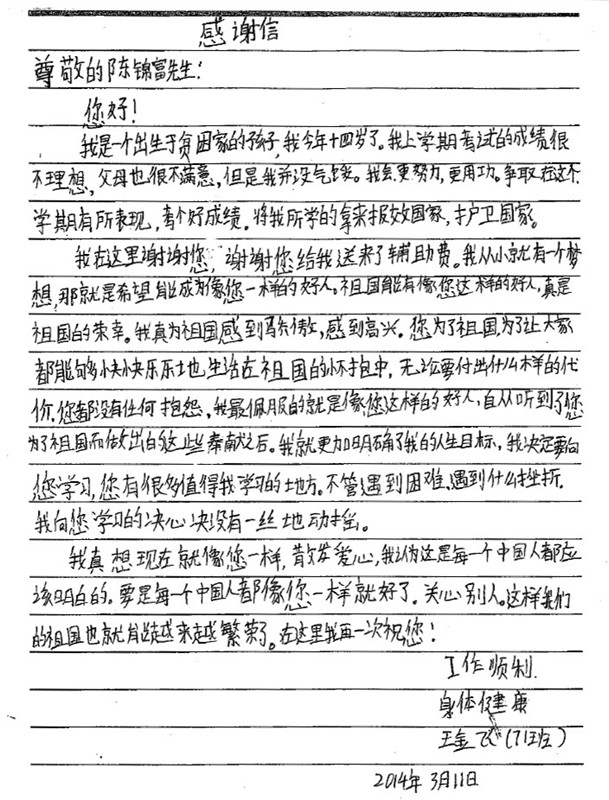 感谢信
尊敬的陈锦富先生：
您好！
我是一个出生于贫困家的孩子，我今年十四岁了。我上学期考试的成绩很
不理想，父母也很不满意，但是我并没气馁。我会更努力，更用功。争取在这个
学期有所表现，考个好成绩。将我所学的拿来报效国家，护卫国家。
我在这里谢谢您，谢谢您给我送来了辅助费。我从小就有一个梦
想，那就是希望能成为像您一样的好人。祖国能有像您这样的好人，真是
祖国的荣幸。我真为祖国感到骄傲，感到高兴。您为了祖国，为了让大家
都能够快快乐乐地生活在祖国的怀抱中，无论要付出什么样的代
价，您都没有任何抱怨，我最佩服的就是像您这样的好人，自从听到了您
为了祖国而做出的这些奉献之后。我就更加明确了我的人生目标，我决定要向
您学习，您有很多值得我学习的地方。不管遇到困难，遇到什么挫折，
我向您学习的决心决没有一丝地动摇。
我真想现在就像您一样，散发爱心，我认为这是每一个中国人都应
该明白的。要是每一个中国人都像您一样就好了。关心别人。这样我们
的祖国也就能越来越繁荣了。在这里我再一次祝您！
工作顺利
身体健康
王金飞（71班）
2014年3月11日